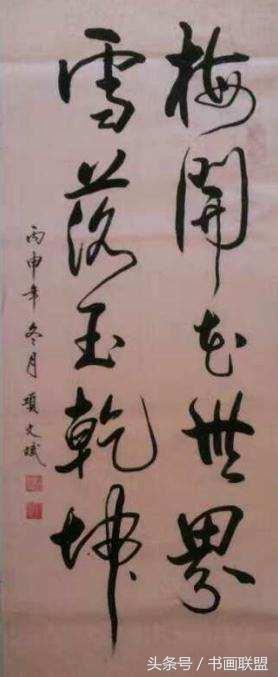 梅開花世界
雪落玉乾坤
丙申年冬月 項文斌
头条号 / 书画联盟